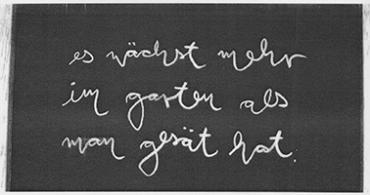 es wächst mehr
im garten als
man gesät hat.